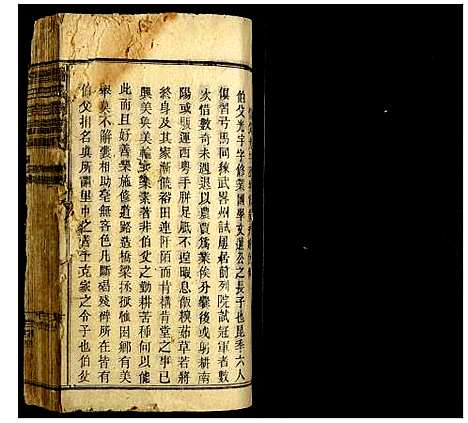 伯父光宇字修業國學文選公之長子也昆季六人
俱習弓馬同練武畧州試屢居前列院試冠軍者數
次惜數奇未遇退以農賈爲業俟分爨後或躬耕南
陽或販運西粵手胼足胝不遑暇息飯糗茹草若將
終身及其家漸饒裕田連阡陌而肯構肯堂之事已
興美奐美輪之樂業著非伯父之勤耕苦種何以能
此而且好善樂施修道路造橋梁拯孤恤困鄉有美
舉奐不解囊相助毫無吝色凡斷碣殘碑所在皆有
伯父相名眞所謂里中之善士克家之令子也伯父